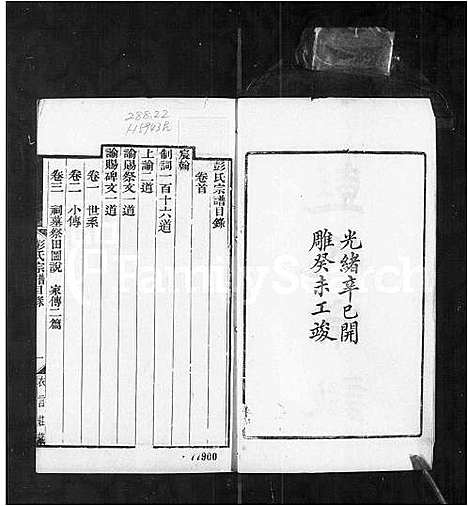 光緒辛巳開
雕癸未工竣
彭氏宗譜目錄
卷首
宸翰
制詞一百十六道
上諭二道
諭賜祭文一道
諭賜碑文一道
卷一 世系
卷二 小傳
卷三 祠墓祭田圖說 家傳二篇
彭氏宗譜目錄
一
衣言莊
288.22
FamilySearch